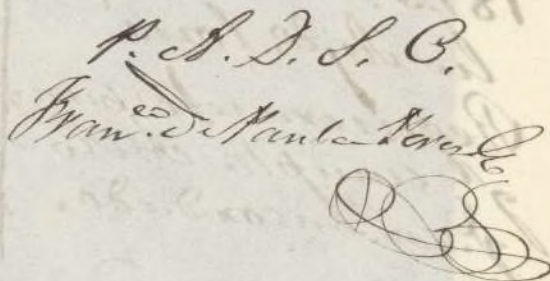 P. A. D. S. C.
Fran.co de Paula